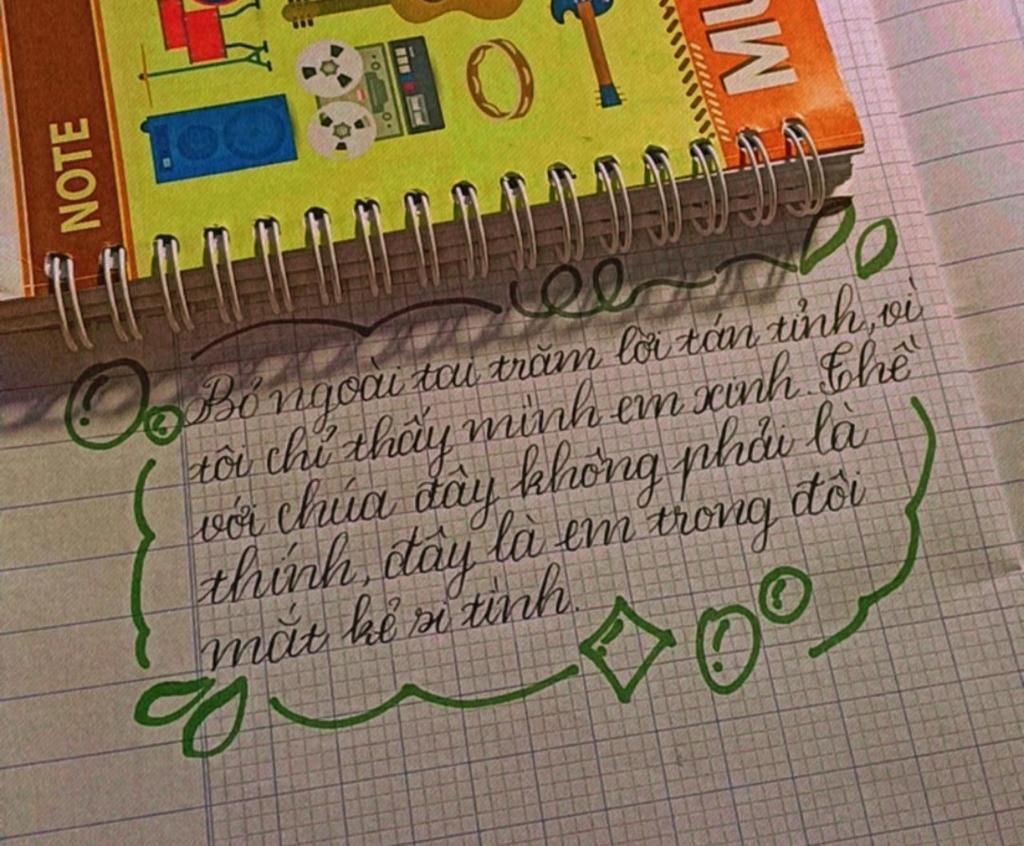 NOTE
MU
Bỏ ngoài tai trăm lời tán tỉnh, vì
tôi chỉ thấy mình em xinh. Thề
với chúa đây không phải là
thính, đây là em trong đôi
mắt kẻ si tình.